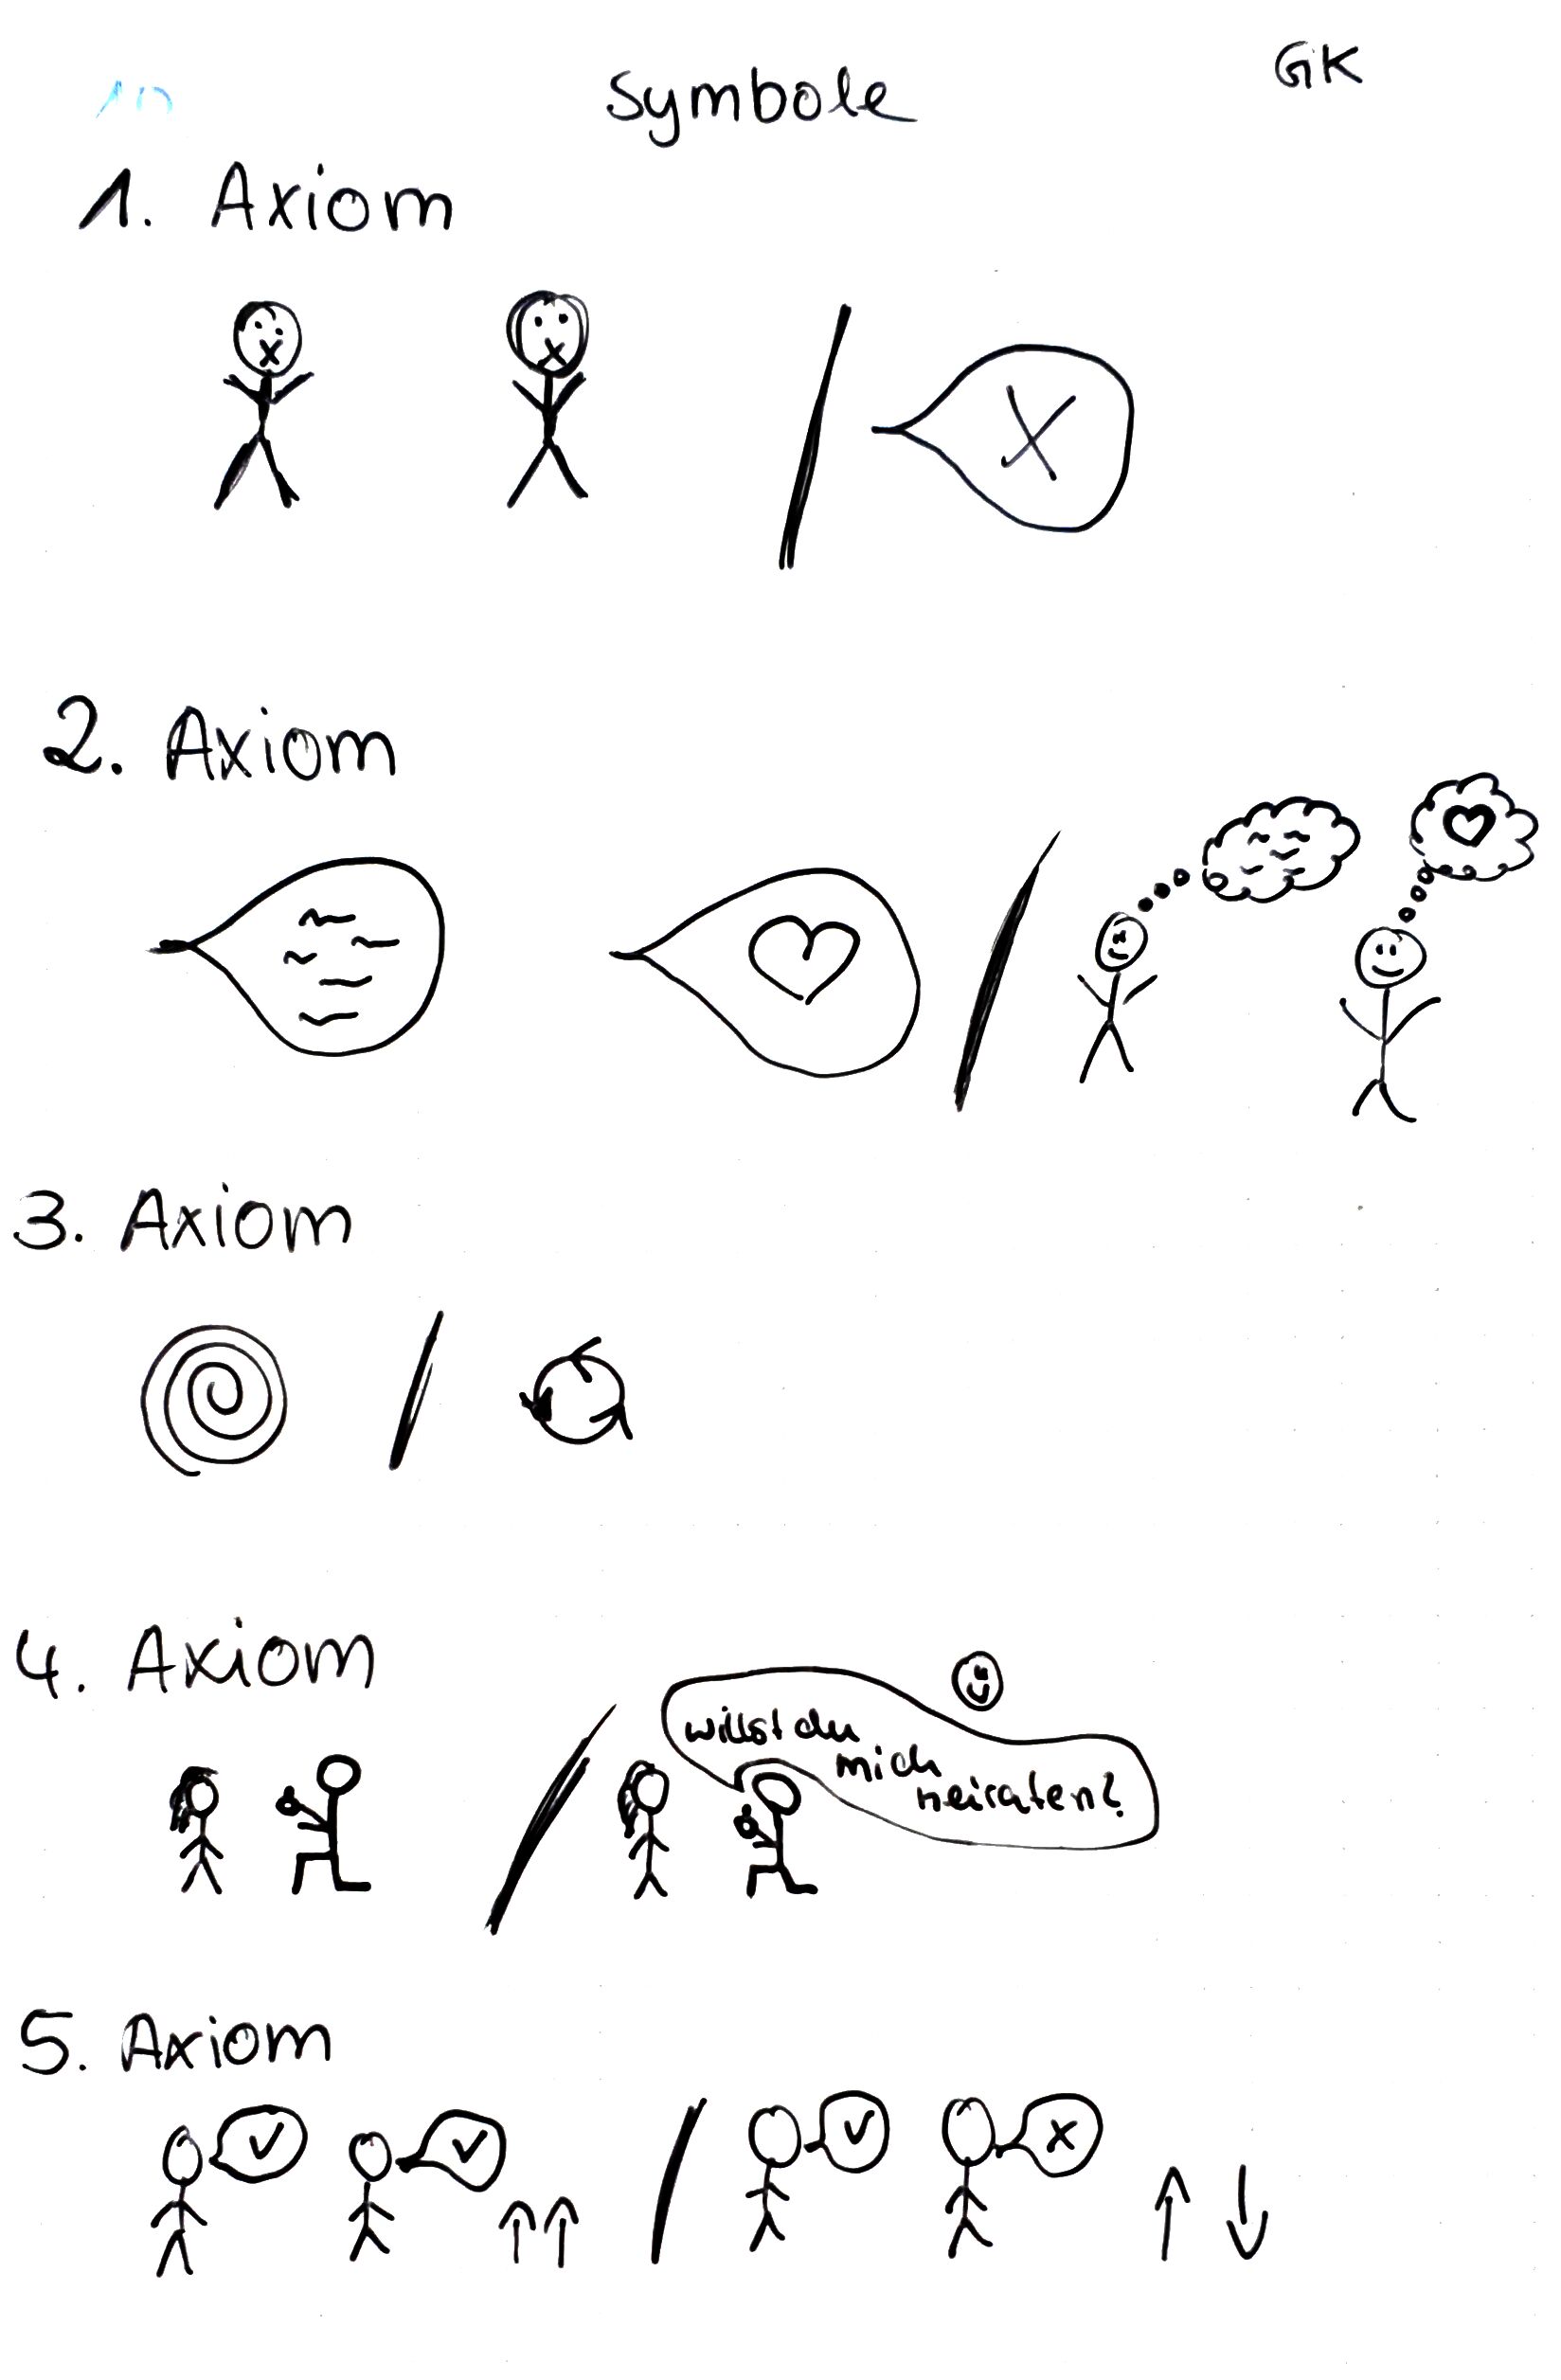 GK
Symbole
1. Axiom
2. Axiom
3. Axiom
4. Axiom
willst du
mich
heiraten?
5. Axiom